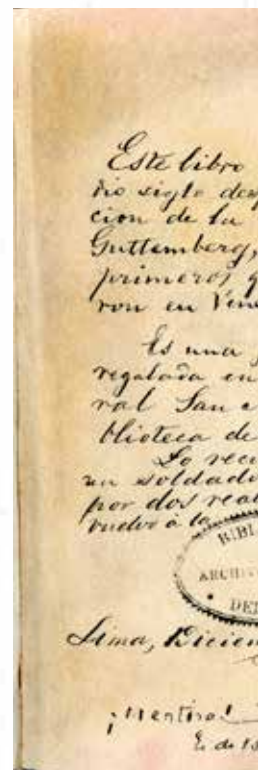 Este libro
dio siglo desp
cion de la
Guttemberg,
primeros q
ron en Vene
Es una j
regalada en
ral San
blioteca de
Lo recu
un soldado
por dos real
vuelvo à la
BIBL
ARCHIV
DEL
Lima, Diciem
¡Mentira!
E. de